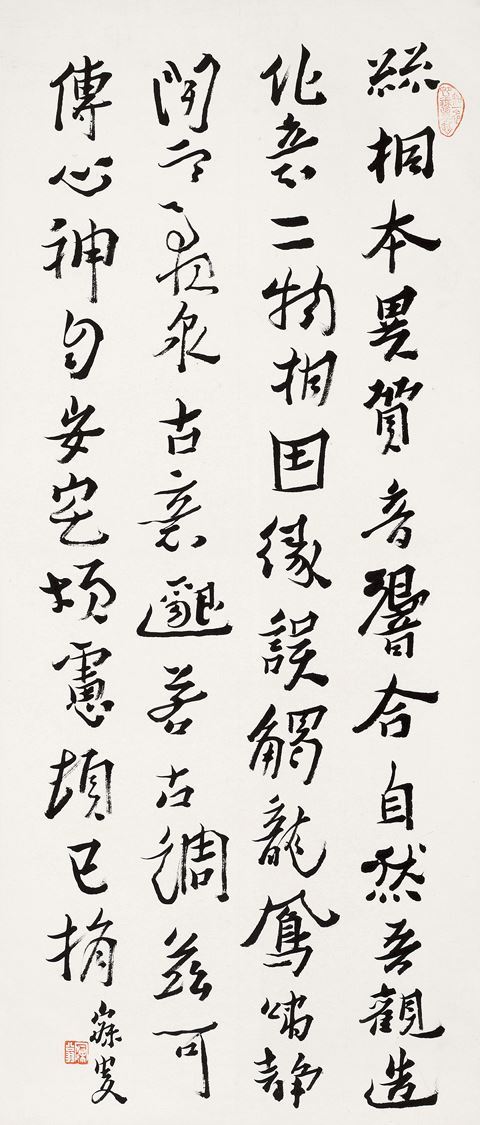 絲桐本異質音響合自然吾觀造
化意二物相因緣誤觸龍鳳嘯靜
聞泉古意邈若古調茲可
傳心神自安宅煩慮頓已捐
寐叟